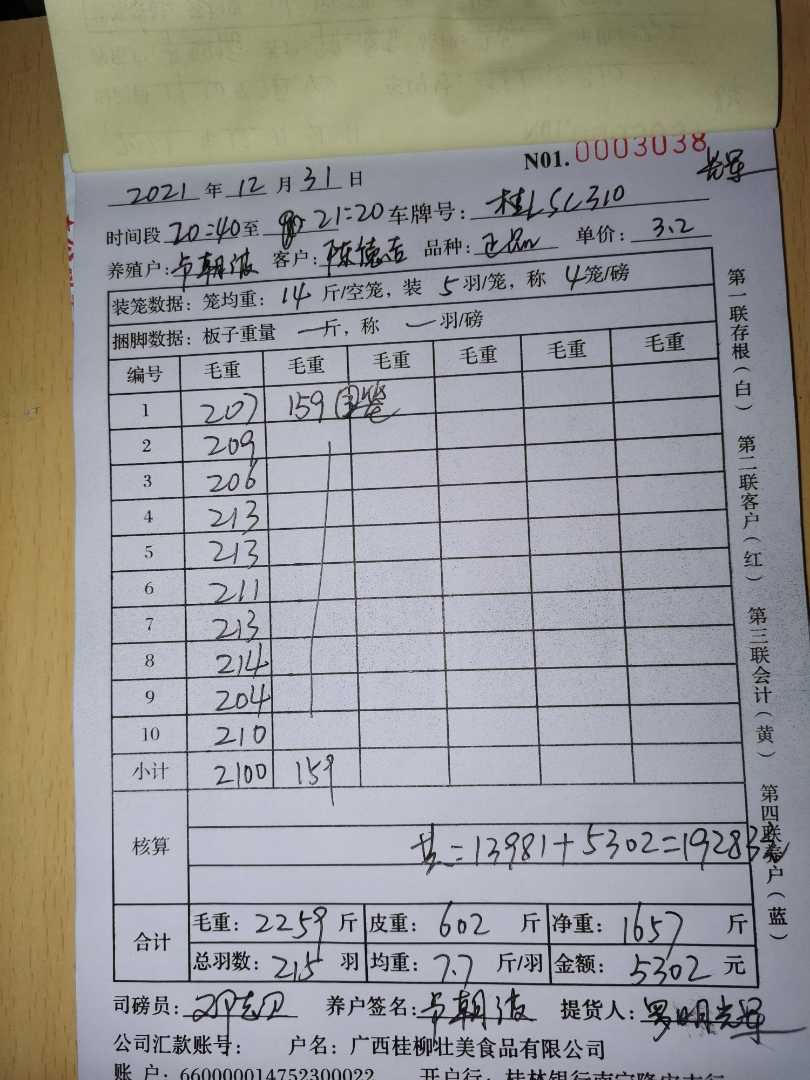 N01. 0003038
2021 年 12 月 31 日
时间段 20:40 至 21:20 车牌号: 桂LSC310
养殖户: 卢朝波 客户: 陈德吉 品种: 正品 单价: 3.2
装笼数据: 笼均重: 14 斤/空笼, 装 5 羽/笼, 称 4 笼/磅
捆脚数据: 板子重量 一 斤, 称 一 羽/磅
编号 毛重 毛重 毛重 毛重 毛重 毛重
1 207 159
2 209
3 206
4 213
5 213
6 211
7 213
8 214
9 204
10 210
小计 2100 159
核算
共=13981+5302=19283元
合计
毛重: 2259 斤 皮重: 602 斤 净重: 1657 斤
总羽数: 215 羽 均重: 7.7 斤/羽 金额: 5302 元
司磅员: 养户签名: 卢朝波 提货人: 罗明光军
公司汇款账号: 户名: 广西桂柳壮美食品有限公司
账 户: 660000014752300022 开户行: 桂林银行南宁隆安支行
第一联存根(白) 第二联客户(红) 第三联会计(黄) 第四联养户(蓝)